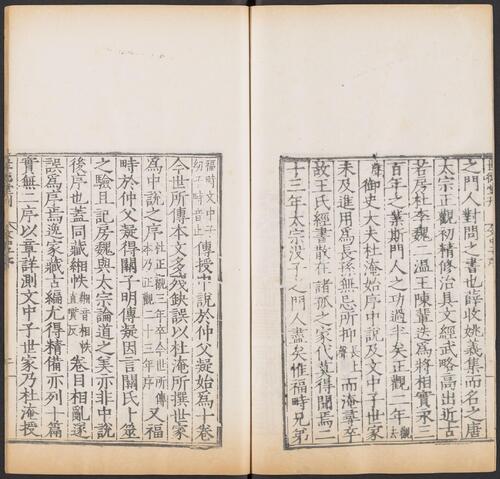 之門人對問之書也薛收姚義集而名之唐
太宗正觀初精修治具文經武略高出近古
若房杜李魏二溫王陳輩迭為將相實永三
百年之業斯門人之功過半矣正觀二年觀去
聲御史大夫杜淹始序中說及文中子世家
未及進用為長孫無忌所抑長上聲而淹尋卒
故王氏經書散在諸孤之家代莫得聞焉二
十三年太宗沒子之門人盡矣惟福時兄弟
福時文中子幼子時音止傳授中說於仲父凝始為十卷
今世所傳本文多殘缺誤以杜淹所撰世家
為中說之序杜正觀三年卒今世所傳本乃正觀二十三年序又福
時於仲父凝得關子明傳凝因言關氏卜筮
之驗且記房魏與太宗論道之美亦非中說
後序也蓋同藏緗帙緗音相帙直質反卷目相亂遂
誤為序焉逸家藏古編尤得精備亦列十篇
實無二序以章詳測文中子世家乃杜淹授